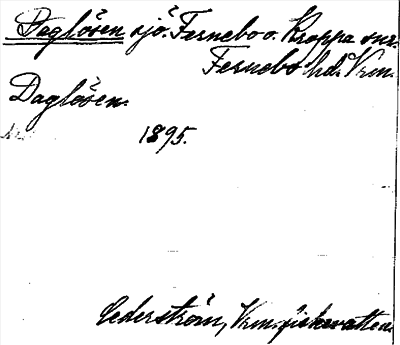 Deglösen sjö. Fernebo o. Kroppa snr.
Fernebo hd. Vrm.
Daglösen.
1895.
Cederström, Vrm. fiskevatten.